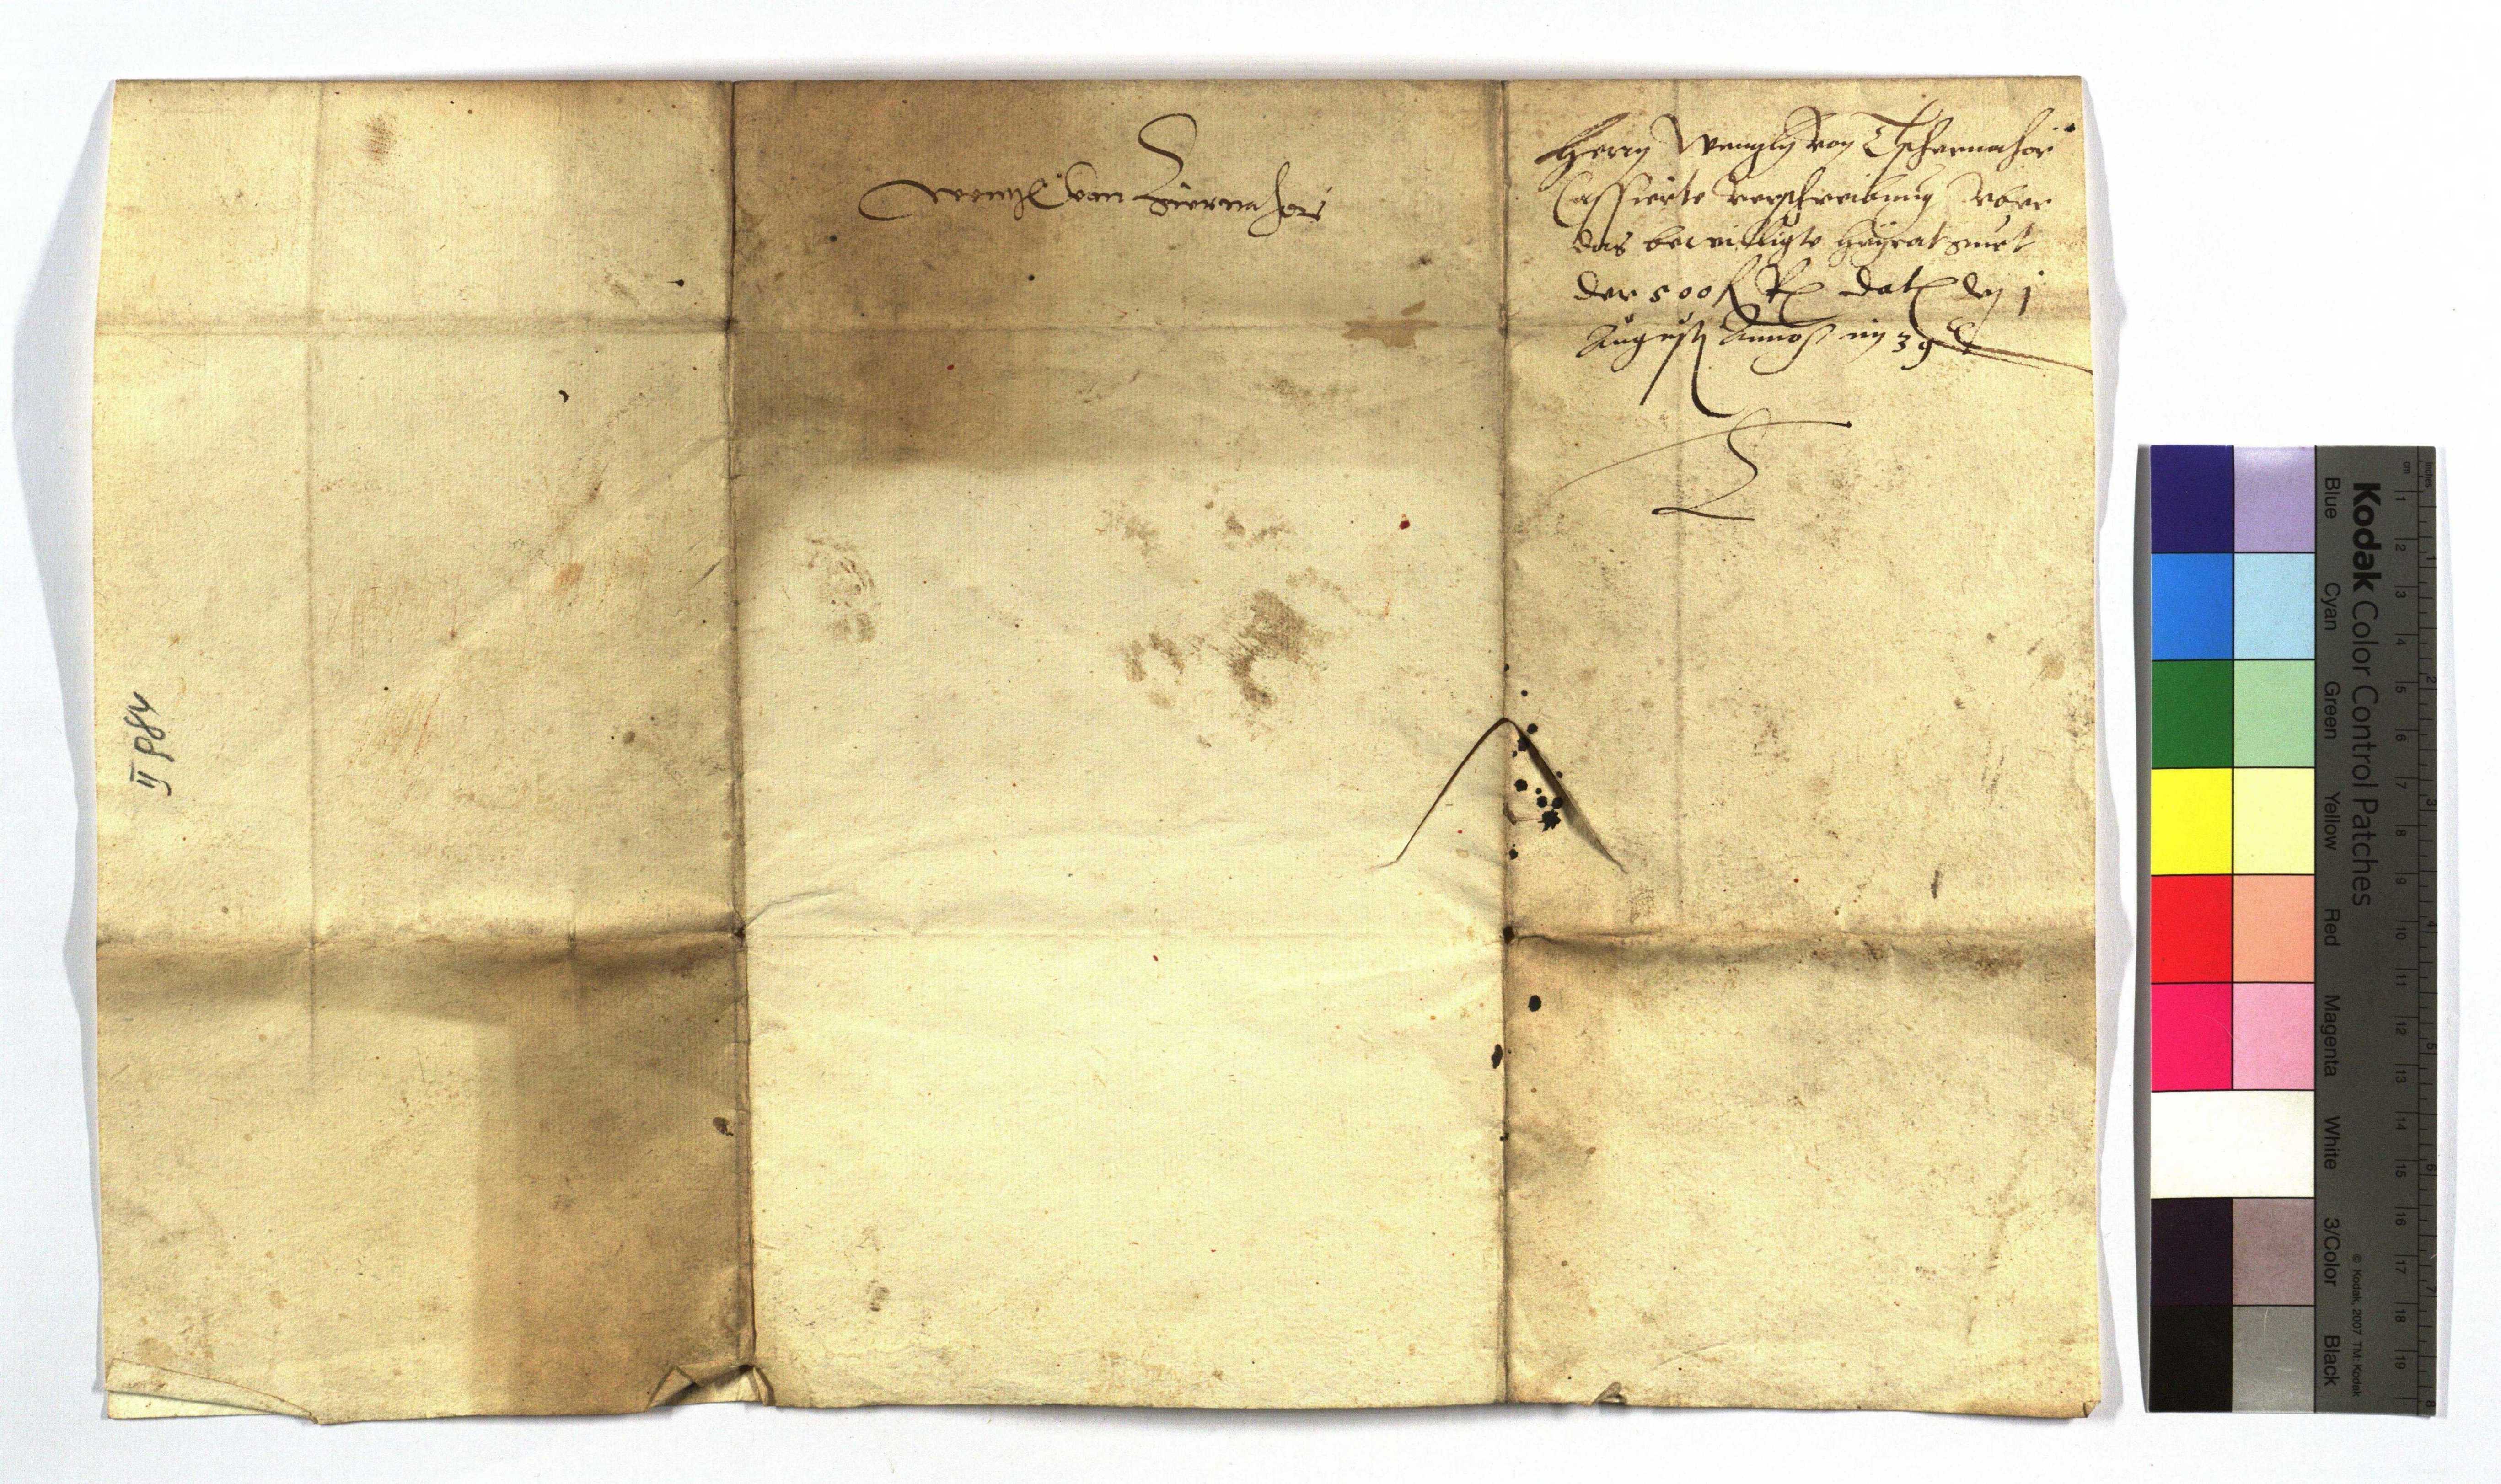 II 988
Wentzl von Ziernahor
Herrn Wentzln von Tschernahor
Cassierte verschreibung vber
das bewilligte Heyrat guet
der 500 f R dat den 1
August Annoß im 39
Kodak Color Control Patches
Blue Cyan Green Yellow Red Magenta White 3/Color Black
© Kodak, 2007 TM: Kodak
inches 1 2 3 4 5 6 7 8
cm 1 2 3 4 5 6 7 8 9 10 11 12 13 14 15 16 17 18 19